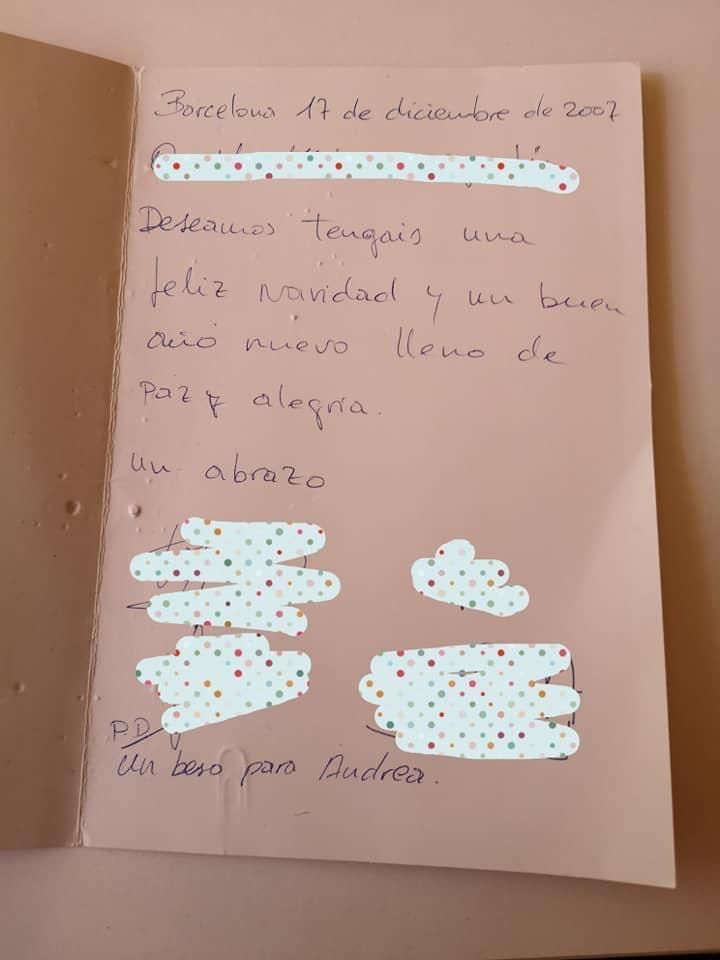 Barcelona 17 de diciembre de 2007
Deseamos tengais una
feliz Navidad y un buen
año nuevo lleno de
Paz y alegria.
un abrazo
P.D
Un beso para Andrea.